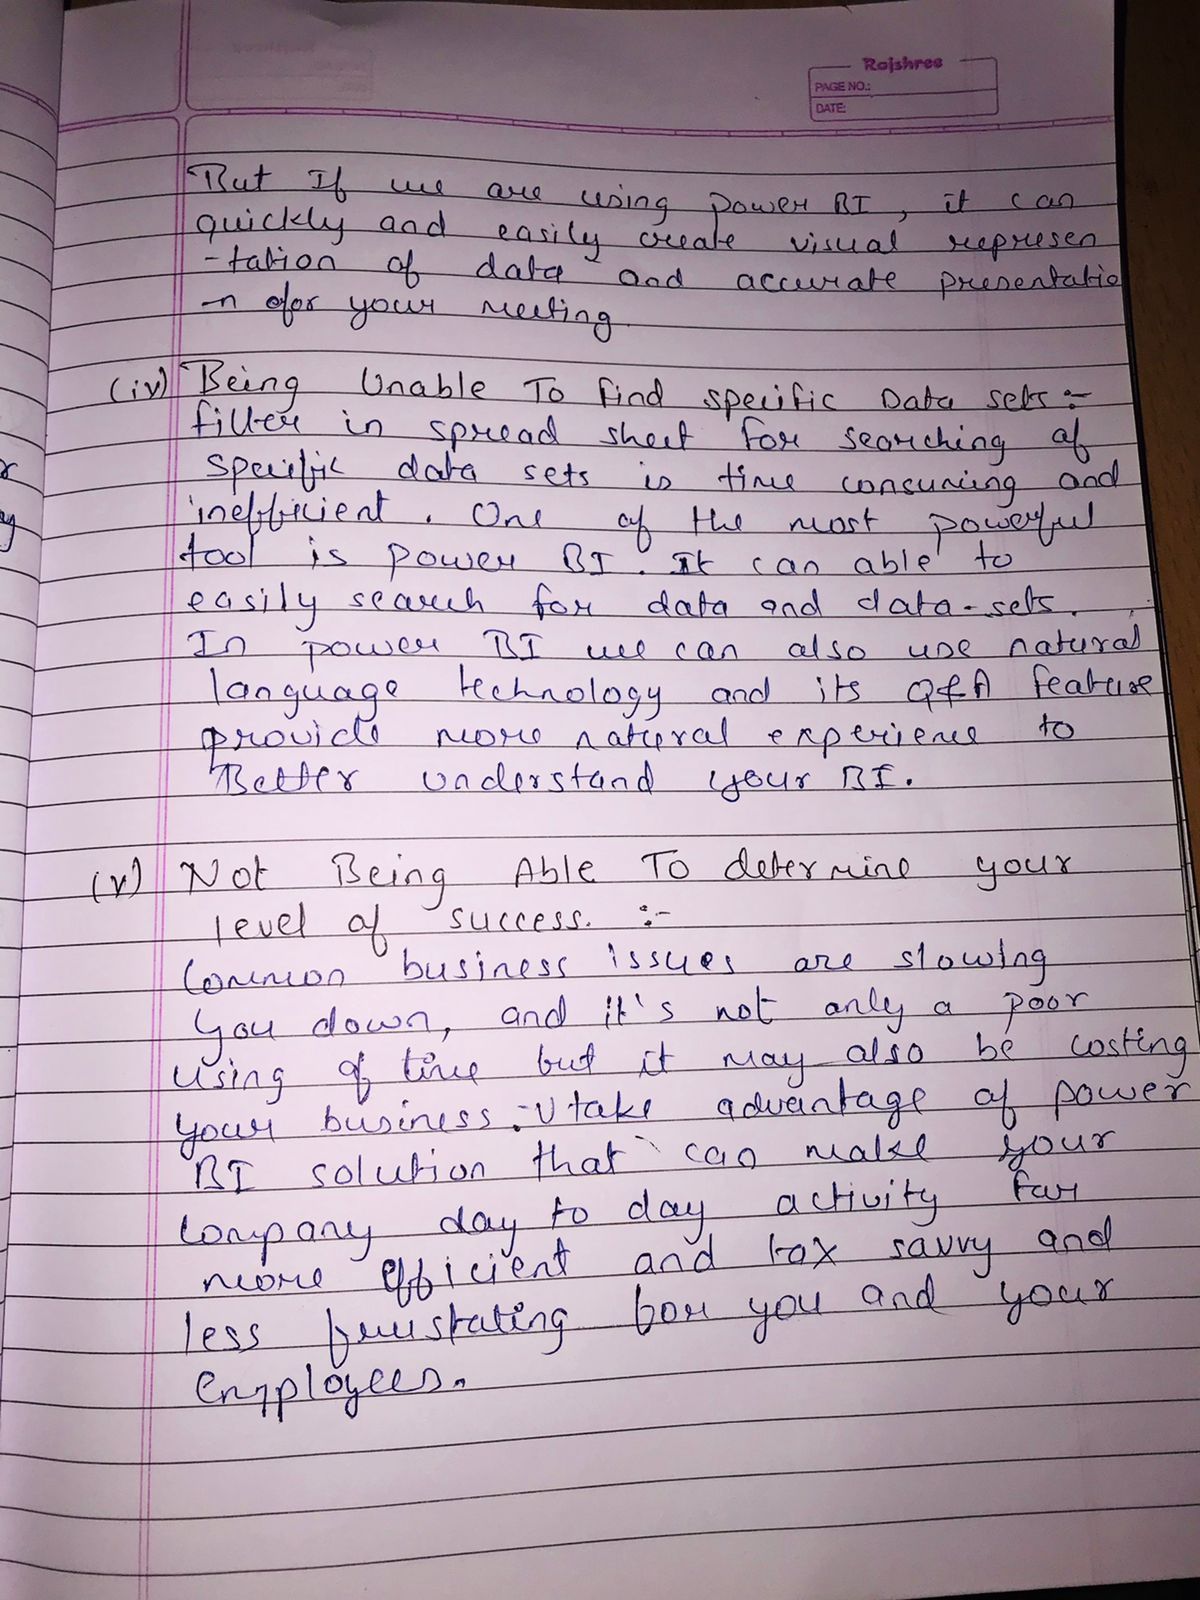 Rajshree
PAGE NO.:
DATE:
But If we are using power BI, it can
quickly and easily create visual represen
-tation of data and accurate presentatio
-n for your meeting.
(iv) Being Unable To find specific Data sets:-
filter in spread sheet for searching of
specific data sets is time consuming and
inefficient. One of the most powerful
tool is power BI. It can able to
easily search for data and data-sets.
In power BI we can also use natural
language technology and its Q&A feature
provide more natural experience to
Better understand your BI.
(v) Not Being Able To determine your
level of success. :-
Common business issues are slowing
you down, and it's not only a poor
using of time but it may also be costing
your business. take advantage of power
BI solution that can make your
company day to day activity far
more efficient and tax savvy and
less frustating for you and your
employees.